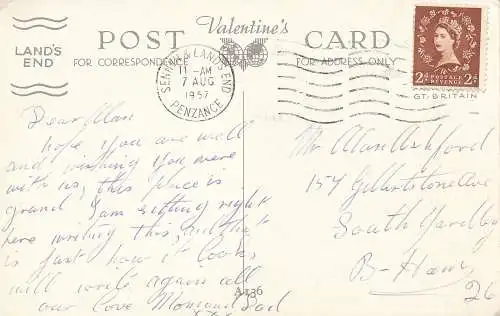 LAND'S
END
POST
Valentine's
CARD
FOR CORRESPONDENCE
FOR ADDRESS ONLY
SENNEN & LANDS END
11-AM
7 AUG
1957
PENZANCE
2D POSTAGE REVENUE 2D
GT. BRITAIN
Dear Alan
hope you are well
and wishing you were
with us, this place is
grand I am sitting right
here writing this, and that
is just how it looks,
will write again all
our love Mom and Dad
xxx
A436
Mr Alan Ashford
154 Gillhurstone Ave
South Yardley
B-Ham
26